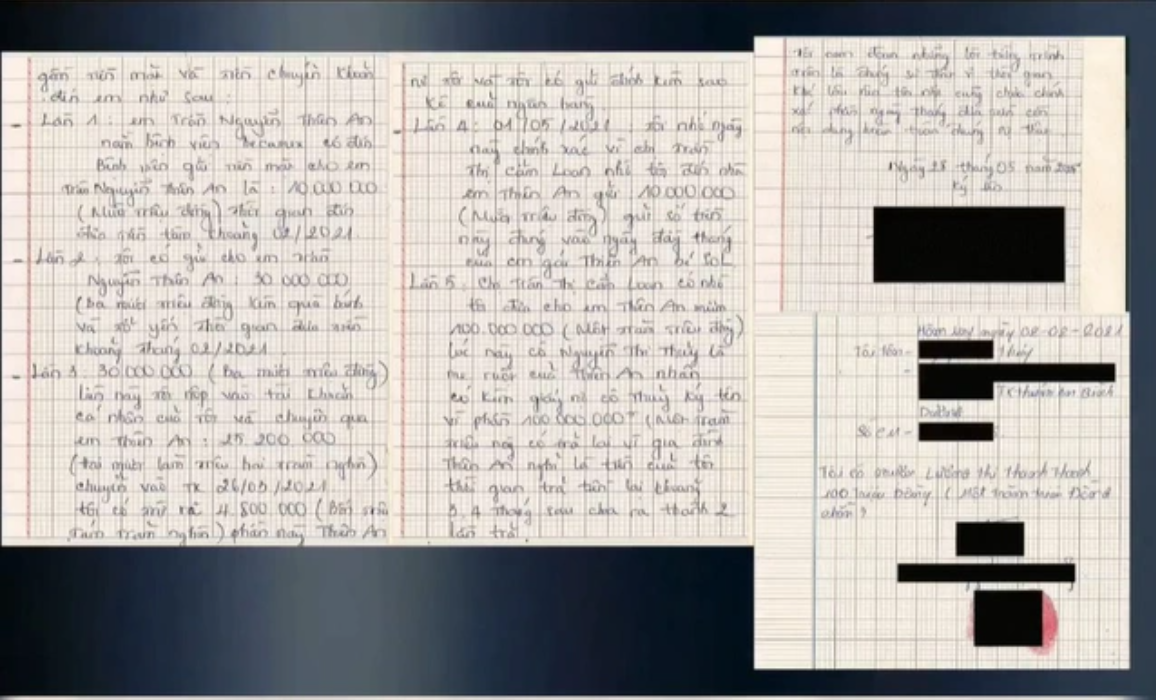 gồm tiền mặt và tiền chuyển khoản
đến em như sau:
- Lần 1: em Trần Nguyễn Thiên An
nằm bệnh viện Becamex có đến
Bệnh viện gửi tiền mặt cho em
Trần Nguyễn Thiên An là: 10.000.000
(Mười triệu đồng) thời gian đến
đưa tiền tầm khoảng 02/2021
- Lần 2: tôi có gửi cho em
Nguyễn Thiên An: 30.000.000
(ba mươi triệu đồng kèm quà bánh
và yến thời gian đưa tiền
khoảng tháng 02/2021
- Lần 3: 30.000.000 (Ba mươi triệu đồng)
lần này tôi nộp vào tài khoản
cá nhân của tôi và chuyển qua
em Thiên An: 25 200 000
(hai mươi lăm triệu hai trăm nghìn)
chuyển vào TK 26/03/2021
tôi có 4.800.000 (Bốn triệu
tám trăm nghìn) phần này Thiên An
nợ tôi và tôi có gửi đính kèm sao
kê của ngân hàng.
- Lần 4: 01/05/2021, tôi nhớ ngày
này chính xác vì chị Trần
Thị Cẩm Loan nhờ tôi đến nhà
em Thiên An gửi 10.000.000
(Mười triệu đồng) gửi số tiền
này đúng vào ngày đầy tháng
của em gái Thiên An bé Sol
Lần 5: Chị Trần Thị Cẩm Loan có nhờ
tôi đưa cho em Thiên An mượn
100.000.000 (Một trăm triệu đồng)
lúc này cô Nguyễn Thị Thủy là
mẹ ruột của Thiên An nhận
có kèm giấy nợ cô Thủy ký tên
vì phần 100.000.000 (Một trăm
triệu này có trả lại vì gia đình
Thiên An nghĩ là tiền của tôi
thời gian trả tiền lại khoảng
3, 4 tháng sau chia ra thành 2
lần trả.
Tôi cam đoan những lời tường trình
trên là đúng sự thật vì thời gian
khá lâu nên tôi nhớ cũng chưa chính
xác phần ngày tháng đưa tiền còn
nội dung hoàn toàn đúng sự thật
Ngày 28 tháng 05 năm
Ký tên
Hôm nay ngày 02-02-2021
Tôi tên - Thủy
TX Thuận An Bình
Dương
Số CM -
Tôi có mượn Lương Thị Thanh Thanh
100 triệu Đồng (Một trăm triệu Đồng
chẵn)